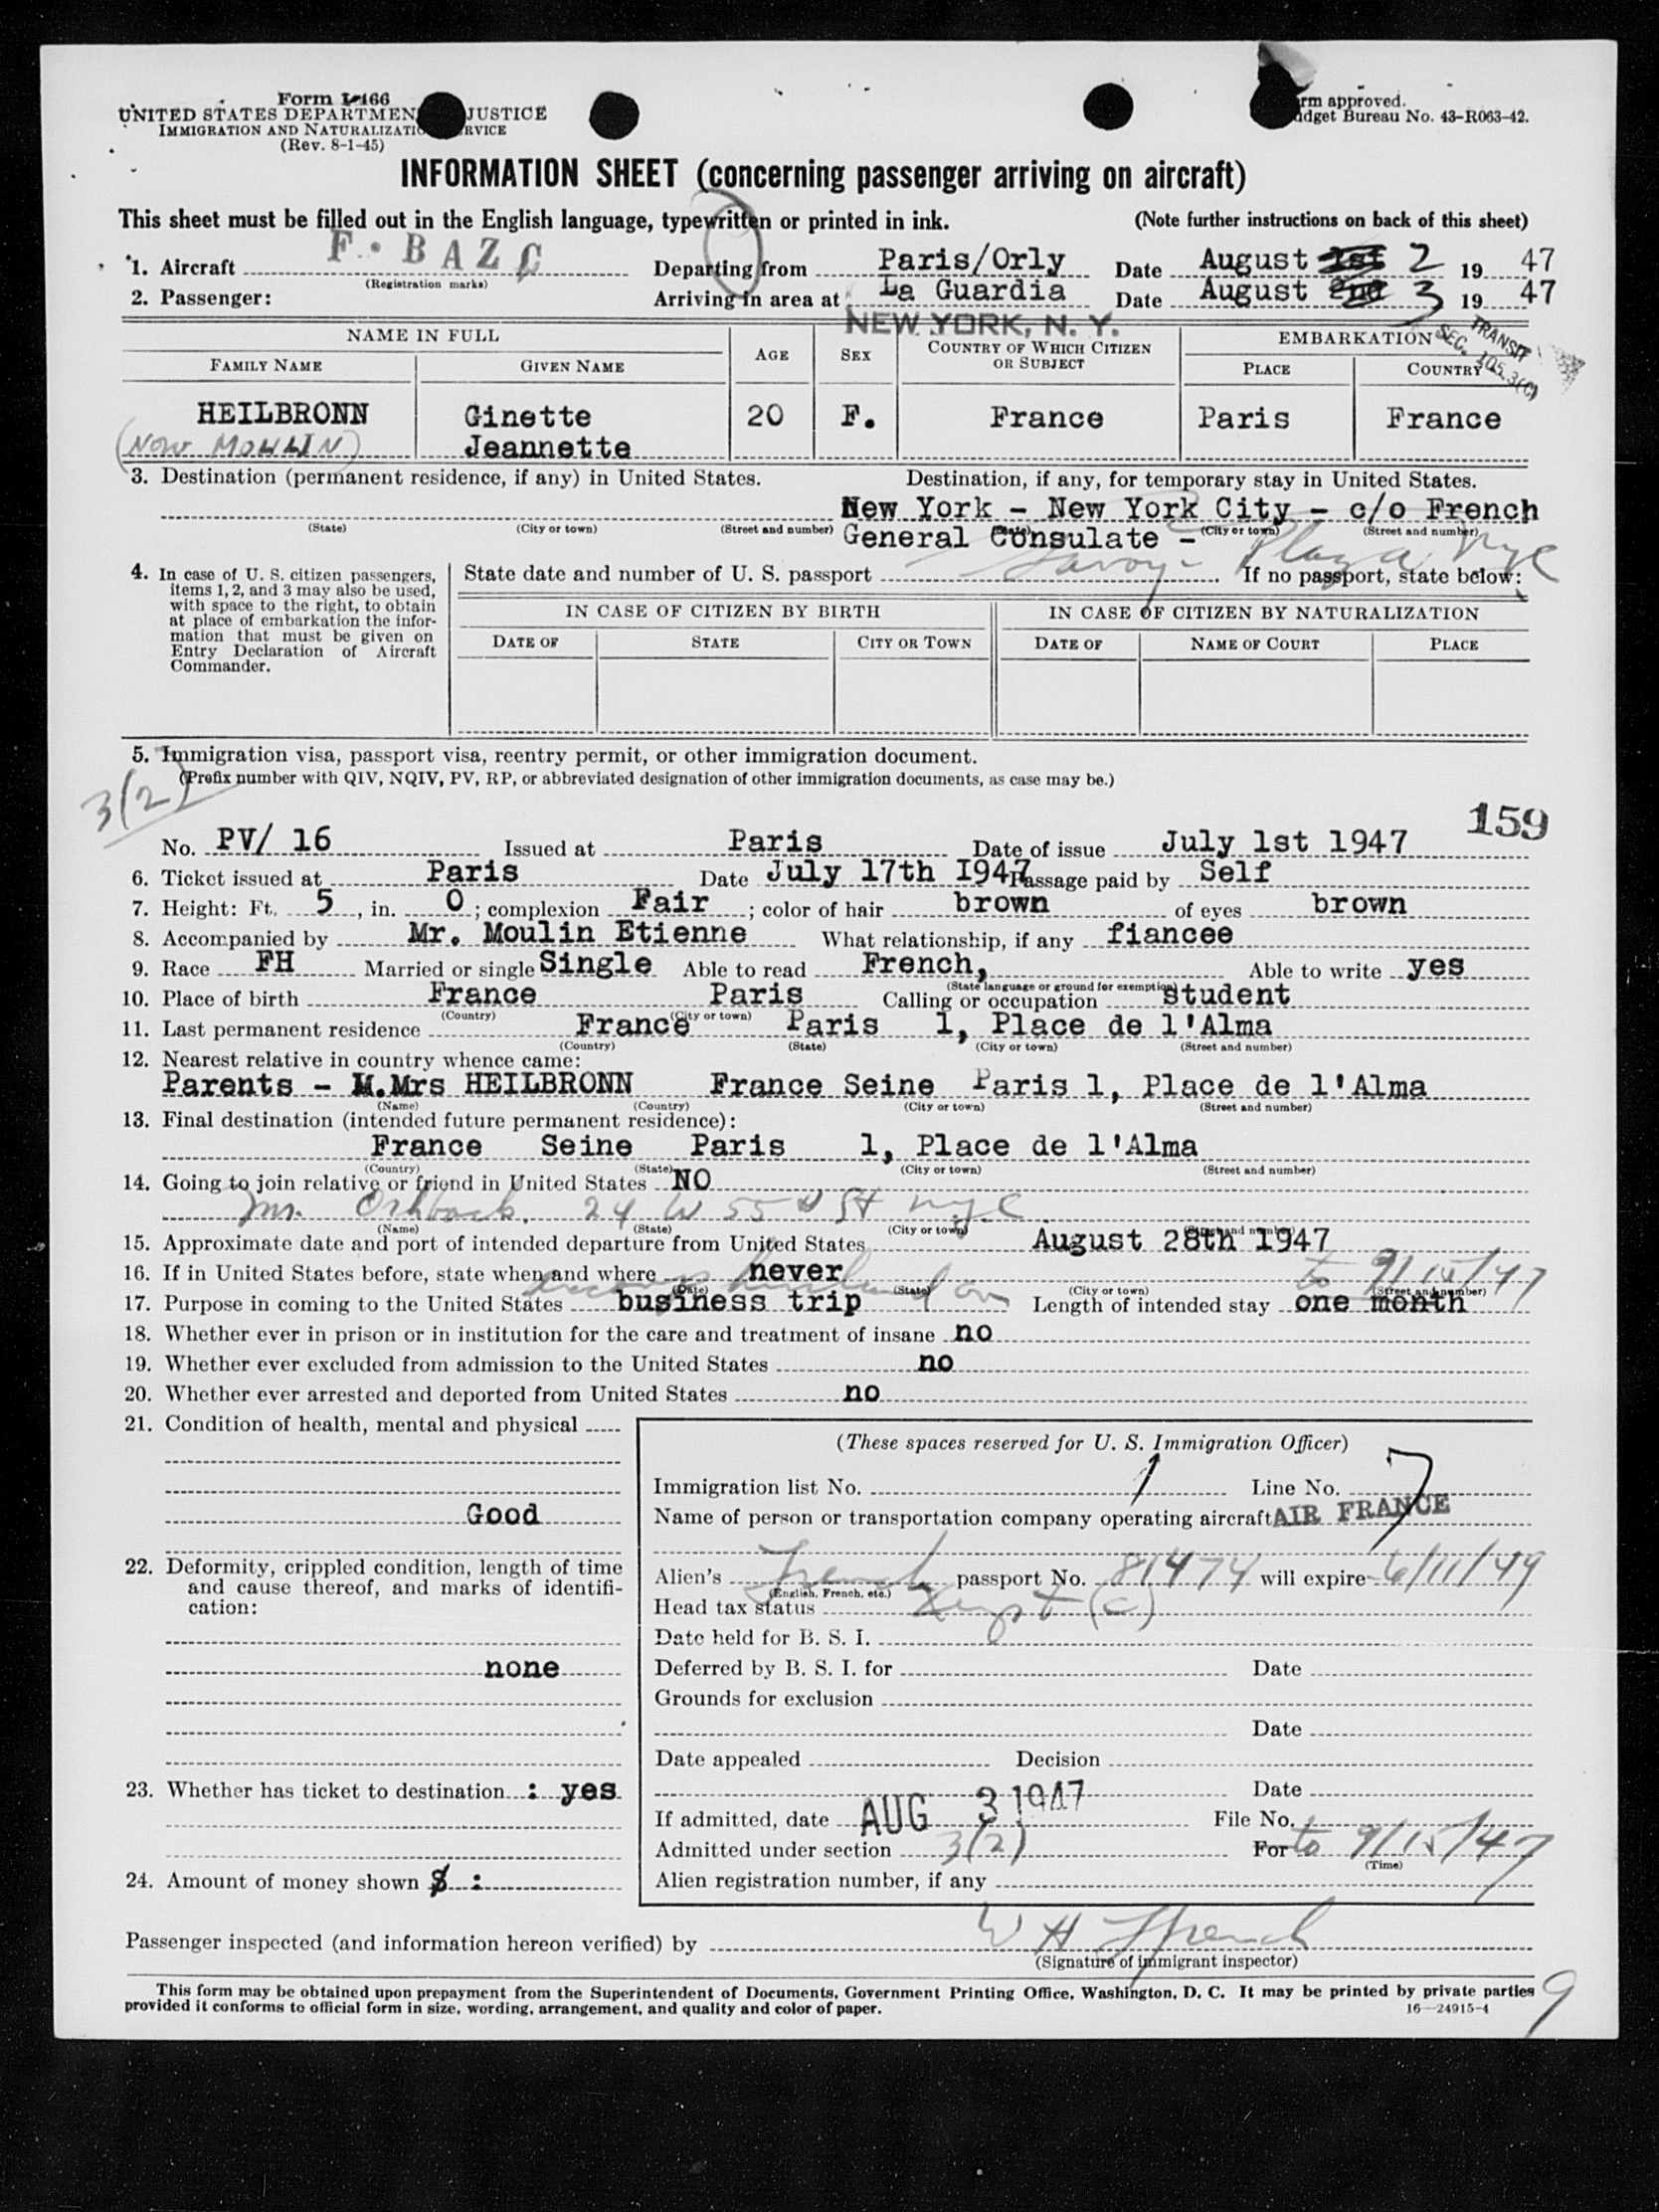 Form I-166
UNITED STATES DEPARTMEN JUSTICE
IMMIGRATION AND NATURALIZATIO RVICE
(Rev. 8-1-45)
rm approved.
dget Bureau No. 43-R063-42.
INFORMATION SHEET (concerning passenger arriving on aircraft)
This sheet must be filled out in the English language, typewritten or printed in ink. (Note further instructions on back of this sheet)
1. Aircraft F·BAZC Departing from Paris/Orly Date August 1st 2 1947
(Registration marks)
2. Passenger: Arriving in area at La Guardia Date August 2nd 3 1947
NEW YORK, N. Y.
TRANSIT
SEC. 105.3(C)
NAME IN FULL AGE SEX COUNTRY OF WHICH CITIZEN OR SUBJECT EMBARKATION
FAMILY NAME GIVEN NAME PLACE COUNTRY
HEILBRONN Ginette 20 F. France Paris France
(NOW MOULIN) Jeannette
3. Destination (permanent residence, if any) in United States. Destination, if any, for temporary stay in United States.
New York - New York City - c/o French
(State) (City or town) (Street and number) (State) (City or town) (Street and number)
General Consulate - Savoy - Plaza NYC
4. In case of U. S. citizen passengers, items 1, 2, and 3 may also be used, with space to the right, to obtain at place of embarkation the information that must be given on Entry Declaration of Aircraft Commander.
State date and number of U. S. passport If no passport, state below:
IN CASE OF CITIZEN BY BIRTH IN CASE OF CITIZEN BY NATURALIZATION
DATE OF STATE CITY OR TOWN DATE OF NAME OF COURT PLACE
5. Immigration visa, passport visa, reentry permit, or other immigration document.
(Prefix number with QIV, NQIV, PV, RP, or abbreviated designation of other immigration documents, as case may be.)
3(2)
159
No. PV/ 16 Issued at Paris Date of issue July 1st 1947
6. Ticket issued at Paris Date July 17th I947 Passage paid by Self
7. Height: Ft. 5, in. 0; complexion Fair; color of hair brown of eyes brown
8. Accompanied by Mr. Moulin Etienne What relationship, if any fiancee
9. Race FH Married or single Single Able to read French, Able to write yes
(State language or ground for exemption)
10. Place of birth France Paris Calling or occupation student
(Country) (City or town)
11. Last permanent residence France Paris 1, Place de l'Alma
(Country) (State) (City or town) (Street and number)
12. Nearest relative in country whence came:
Parents - M.Mrs HEILBRONN France Seine Paris 1, Place de l'Alma
(Name) (Country) (City or town) (Street and number)
13. Final destination (intended future permanent residence):
France Seine Paris 1, Place de l'Alma
(Country) (State) (City or town) (Street and number)
14. Going to join relative or friend in United States NO
24 W 55th St NYC
(Name) (State) (City or town) (Street and number)
15. Approximate date and port of intended departure from United States August 28th 1947
16. If in United States before, state when and where never to 9/15/47
(Date) (State) (City or town) (Street and number)
17. Purpose in coming to the United States business trip Length of intended stay one month
18. Whether ever in prison or in institution for the care and treatment of insane no
19. Whether ever excluded from admission to the United States no
20. Whether ever arrested and deported from United States no
21. Condition of health, mental and physical
Good
22. Deformity, crippled condition, length of time and cause thereof, and marks of identification:
none
23. Whether has ticket to destination : yes
24. Amount of money shown $ :
(These spaces reserved for U. S. Immigration Officer)
Immigration list No. 1 Line No. 7
Name of person or transportation company operating aircraft AIR FRANCE
Alien's French passport No. 81474 will expire 6/11/49
(English, French, etc.)
Head tax status Exempt (c)
Date held for B. S. I.
Deferred by B. S. I. for Date
Grounds for exclusion
Date
Date appealed Decision
Date
If admitted, date AUG 3 1947 File No.
Admitted under section 3(2) For to 9/15/47
(Time)
Alien registration number, if any
Passenger inspected (and information hereon verified) by W H French
(Signature of immigrant inspector)
This form may be obtained upon prepayment from the Superintendent of Documents, Government Printing Office, Washington, D. C. It may be printed by private parties
provided it conforms to official form in size, wording, arrangement, and quality and color of paper. 16—24915-4
9